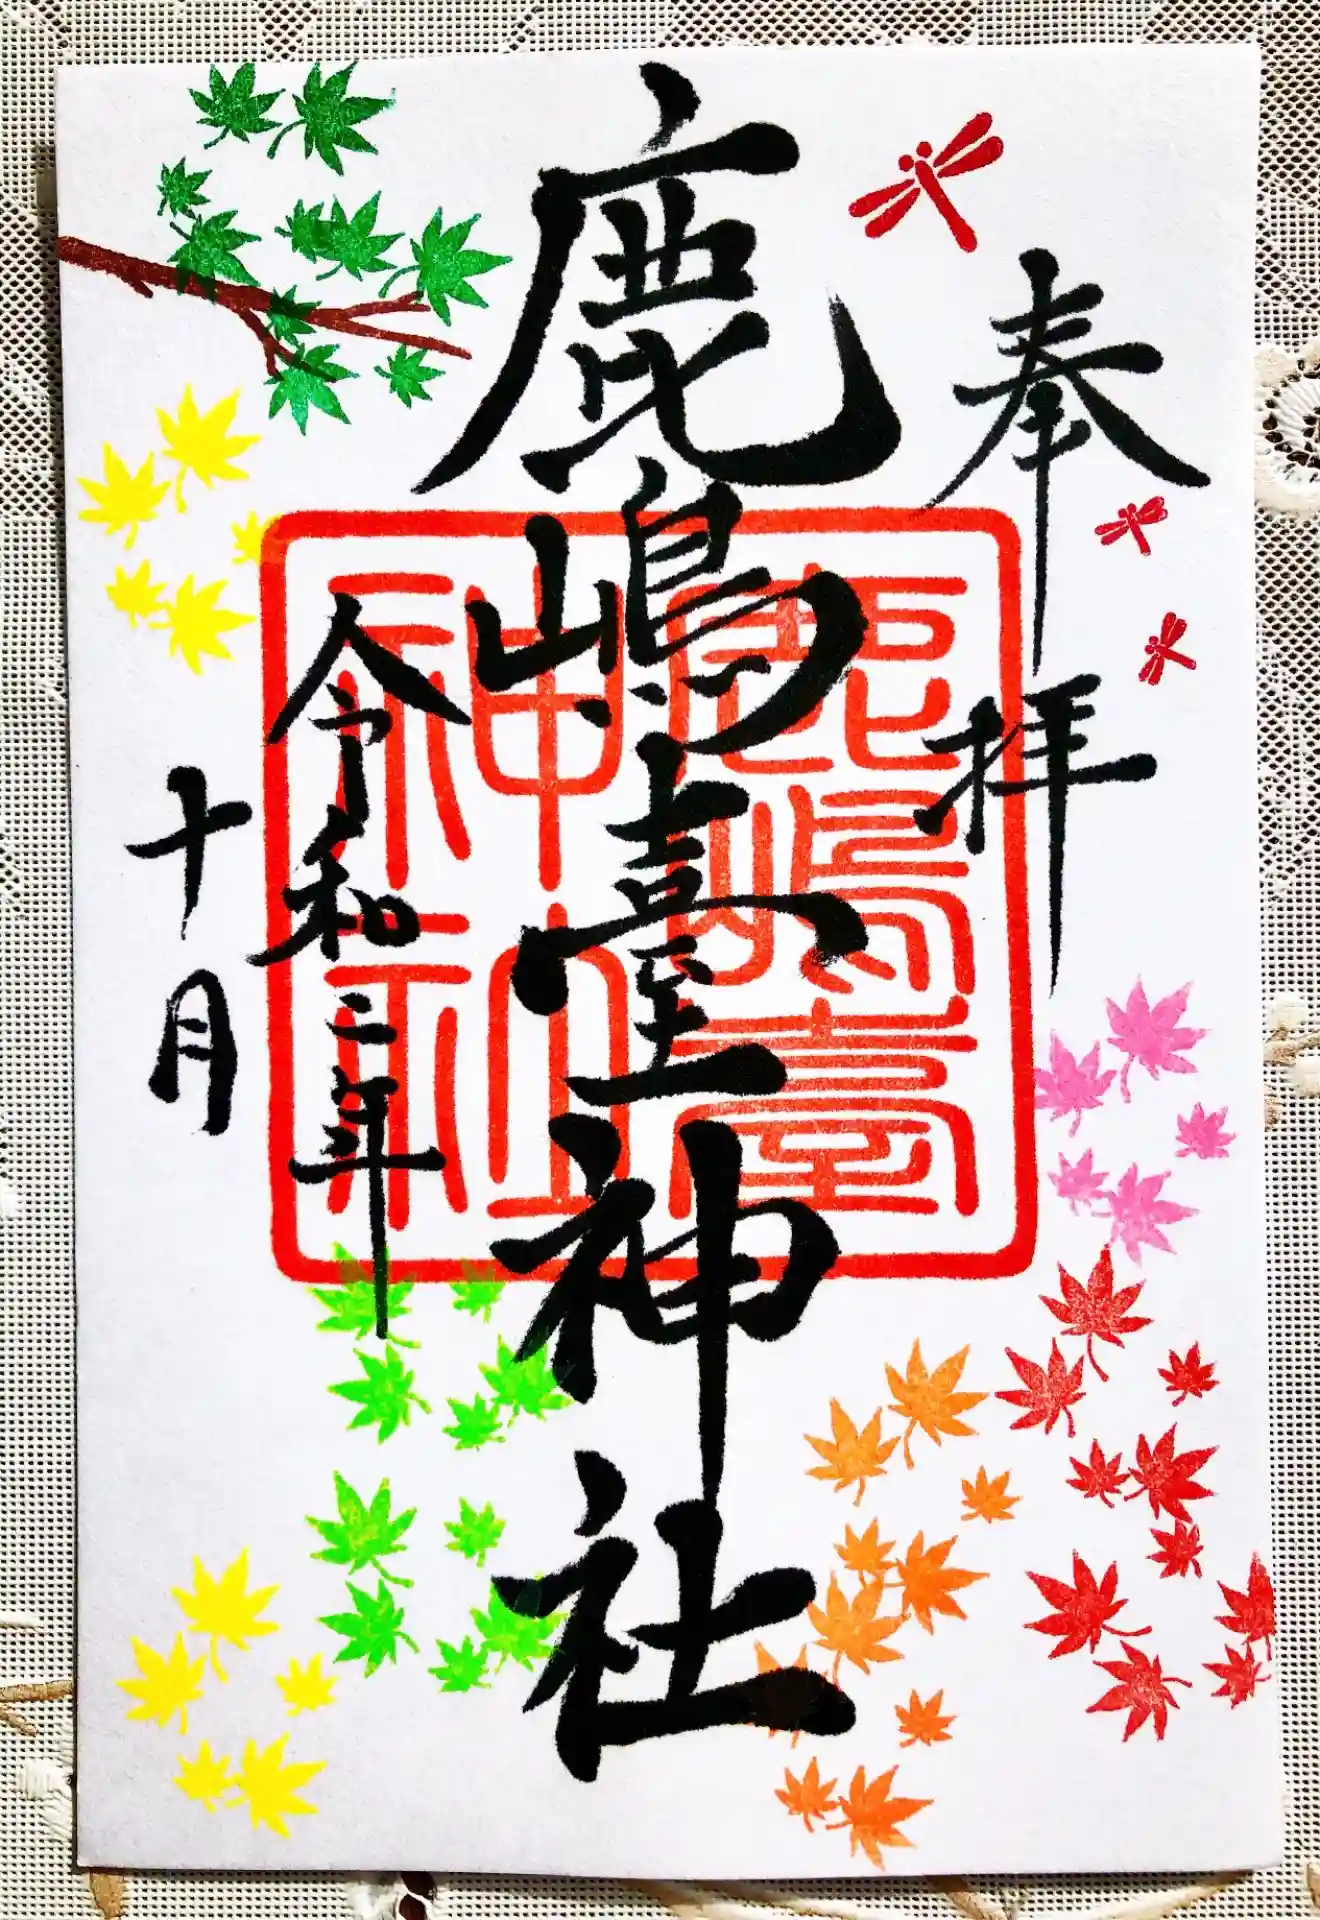 奉拝
鹿嶋臺神社
鹿嶋臺
神社
令和二年
十月